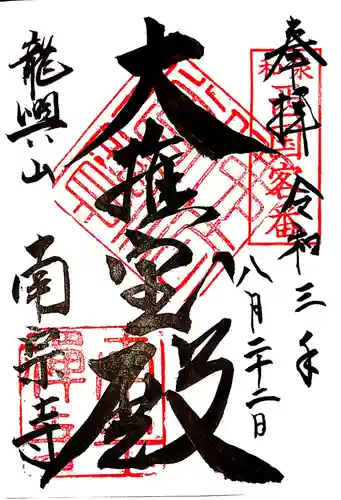 奉拝
令和三年
八月二十二日
大雄宝殿
龍興山
南宗寺